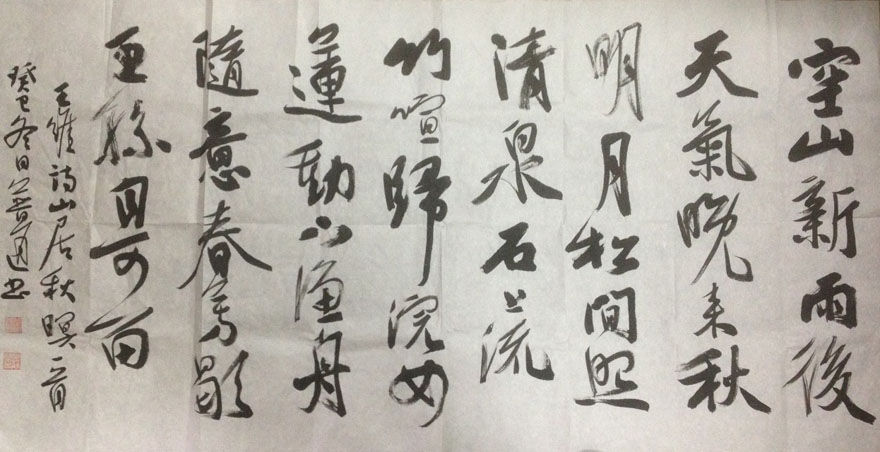 空山新雨後
天氣晚来秋
明月松間照
清泉石上流
竹喧歸浣女
蓮動下漁舟
隨意春芳歇
王孫自可留
王維詩山居秋暝一首
癸巳冬日書